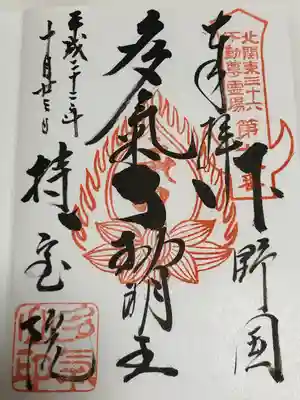 北関東三十六
不動尊霊場
奉拝
下野国
多氣不動明王
持宝院
平成二十三年
十月廿三日